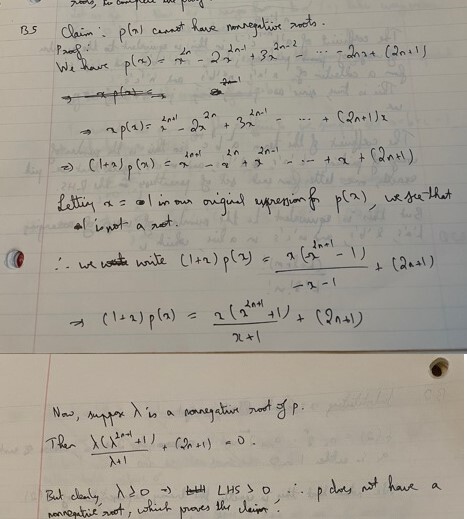 roots, to complete the proof
B5 Claim: p(x) cannot have nonnegative roots.
Proof:
We have p(x) = x^{2n} - 2x^{2n-1} + 3x^{2n-2} - ... - 2nx + (2n+1)
⇒ x p(x) = x^{2n+1} - 2x^{2n} + 3x^{2n-1} - ... + (2n+1)x
⇒ (1+x) p(x) = x^{2n+1} - x^{2n} + x^{2n-1} - ... + x + (2n+1)
Letting x = 1 in our original expression for p(x), we see that
1 is not a root.
∴ we write (1+x) p(x) = x(-x^{2n+1} - 1) / -x-1 + (2n+1)
⇒ (1+x) p(x) = x(x^{2n+1} + 1) / x+1 + (2n+1)
Now, suppose λ is a nonnegative root of p.
Then λ(λ^{2n+1} + 1) / λ+1 + (2n+1) = 0.
But clearly, λ ≥ 0 ⇒ LHS > 0, ∴ p does not have a
nonnegative root, which proves the claim.